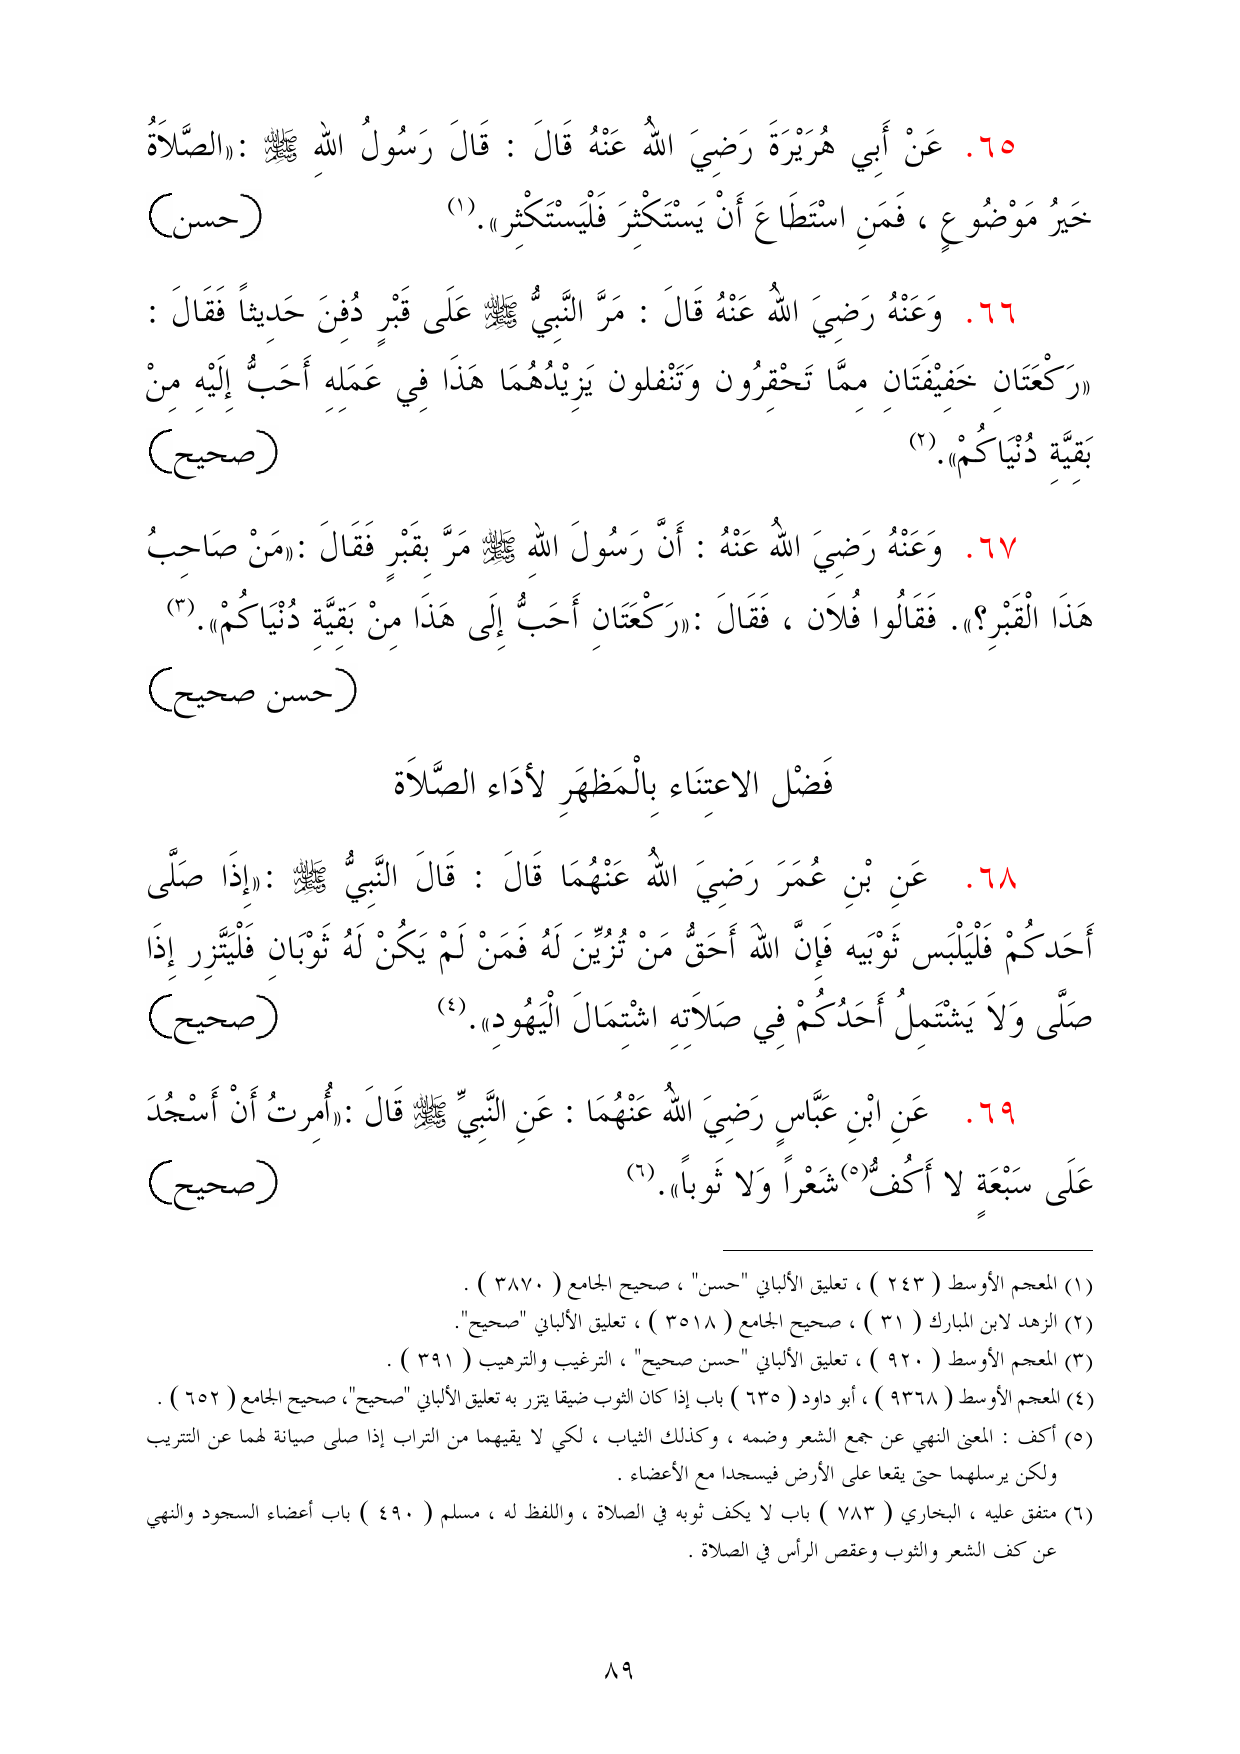 ٦٥. عَنْ أَبِي هُرَيْرَةَ رَضِيَ اللهُ عَنْهُ قَالَ : قَالَ رَسُولُ اللهِ ﷺ :«الصَّلاَةُ
خَيرُ مَوْضُوعٍ ، فَمَنِ اسْتَطَاعَ أَنْ يَسْتَكْثِرَ فَلْيَسْتَكْثِر».(١) (حسن)
٦٦. وَعَنْهُ رَضِيَ اللهُ عَنْهُ قَالَ : مَرَّ النَّبِيُّ ﷺ عَلَى قَبْرٍ دُفِنَ حَدِيثاً فَقَالَ :
«رَكْعَتَانِ خَفِيْفَتَانِ مِمَّا تَحْقِرُون وَتَنْفلون يَزِيْدُهُمَا هَذَا فِي عَمَلِهِ أَحَبُّ إِلَيْهِ مِنْ
بَقِيَّةِ دُنْيَاكُمْ».(٢) (صحيح)
٦٧. وَعَنْهُ رَضِيَ اللهُ عَنْهُ : أَنَّ رَسُولَ اللهِ ﷺ مَرَّ بِقَبْرٍ فَقَالَ :«مَنْ صَاحِبُ
هَذَا الْقَبْرِ؟». فَقَالُوا فُلاَن ، فَقَالَ :«رَكْعَتَانِ أَحَبُّ إِلَى هَذَا مِنْ بَقِيَّةِ دُنْيَاكُمْ».(٣)
(حسن صحيح)
فَضْل الاعتِنَاء بِالْمَظهَرِ لأدَاء الصَّلاَة
٦٨. عَنِ بْنِ عُمَرَ رَضِيَ اللهُ عَنْهُمَا قَالَ : قَالَ النَّبِيُّ ﷺ :«إِذَا صَلَّى
أَحَدكُمْ فَلْيَلْبَس ثَوْبَيه فَإِنَّ اللهَ أَحَقُّ مَنْ تُزُيِّنَ لَهُ فَمَنْ لَمْ يَكُنْ لَهُ ثَوْبَانِ فَلْيَتَّزِر إِذَا
صَلَّى وَلاَ يَشْتَمِلُ أَحَدُكُمْ فِي صَلاَتِهِ اشْتِمَالَ الْيَهُودِ».(٤) (صحيح)
٦٩. عَنِ ابْنِ عَبَّاسٍ رَضِيَ اللهُ عَنْهُمَا : عَنِ النَّبِيِّ ﷺ قَالَ :«أُمِرتُ أَنْ أَسْجُدَ
عَلَى سَبْعَةٍ لا أَكُفُّ(٥) شَعْراً وَلا ثَوباً».(٦) (صحيح)
(١) المعجم الأوسط ( ٢٤٣ ) ، تعليق الألباني "حسن" ، صحيح الجامع ( ٣٨٧٠ ) .
(٢) الزهد لابن المبارك ( ٣١ ) ، صحيح الجامع ( ٣٥١٨ ) ، تعليق الألباني "صحيح".
(٣) المعجم الأوسط ( ٩٢٠ ) ، تعليق الألباني "حسن صحيح" ، الترغيب والترهيب ( ٣٩١ ) .
(٤) المعجم الأوسط ( ٩٣٦٨ ) ، أبو داود ( ٦٣٥ ) باب إذا كان الثوب ضيقا يتزر به تعليق الألباني "صحيح"، صحيح الجامع ( ٦٥٢ ) .
(٥) أكف : المعنى النهي عن جمع الشعر وضمه ، وكذلك الثياب ، لكي لا يقيهما من التراب إذا صلى صيانة لهما عن التتريب
ولكن يرسلهما حتى يقعا على الأرض فيسجدا مع الأعضاء .
(٦) متفق عليه ، البخاري ( ٧٨٣ ) باب لا يكف ثوبه في الصلاة ، واللفظ له ، مسلم ( ٤٩٠ ) باب أعضاء السجود والنهي
عن كف الشعر والثوب وعقص الرأس في الصلاة .
٨٩